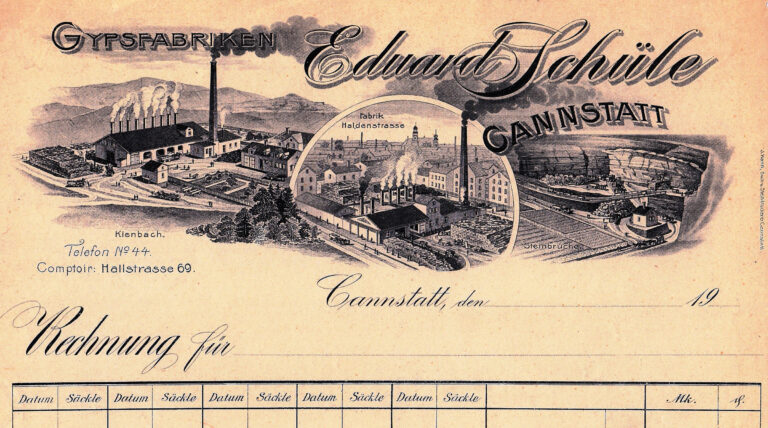 GYPSFABRIKEN
Eduard Schüle
CANNSTATT
Fabrik
Haldenstrasse
Kienbach.
Steinbrüche
Telefon No 44.
Comptoir: Hallstrasse 69.
Cannstatt, den 19
Rechnung für
Datum Säckle Datum Säckle Datum Säckle Datum Säckle Datum Säckle Mk. ₰.